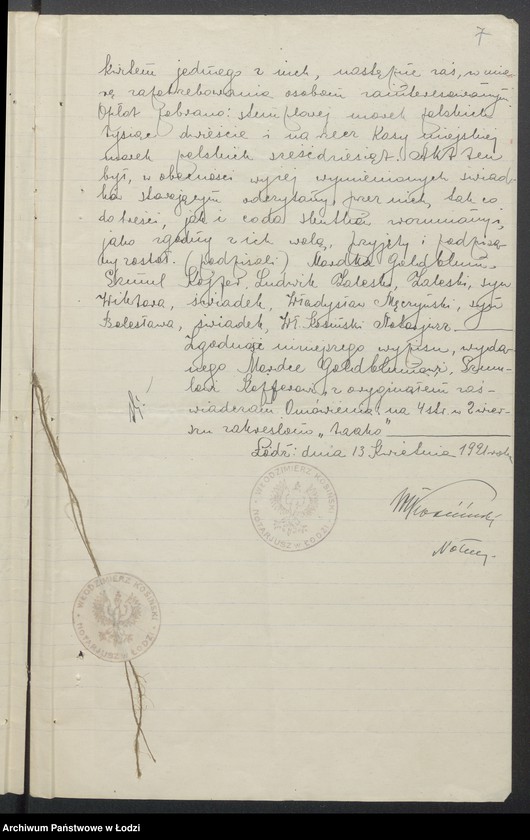 7
jednego z nich, następnie zaś, w mia-
rę zapotrzebowania osobom zainteresowanym.
Opłat pobrano: stemplowej marek polskich
tysiąc dwieście i na rzecz Kasy miejskiej
marek polskich sześćdziesiąt. Akt ten
był, w obecności wyżej wymienionych świad-
ków stawającym odczytany, przez nich, tak co
do treści, jak i co do skutków zrozumiany i,
jako zgodny z ich wolą, przyjęty i podpisa-
ny został. (podpisali:) Mordka Goldblum,
Szmul Koffer, Ludwik Zaleski, syn
Wiktora, świadek, Władysław Męczyński, syn
Bolesława, świadek, Wł. Kosiński Notarjusz.
Zgodność niniejszego wypisu, wyda-
nego Mordce Goldblumowi, Szmu-
lowi Kofferowi, z oryginałem zaś-
wiadczam. Omówienia: na 4 str. w 2 wier-
szu zakreślono
Łódź: dnia 13 Kwietnia 1921 roku
WŁODZIMIERZ KOSIŃSKI
NOTARJUSZ w ŁODZI
WKosiński
Notarj.
WŁODZIMIERZ KOSIŃSKI
NOTARJUSZ w ŁODZI
Archiwum Państwowe w Łodzi